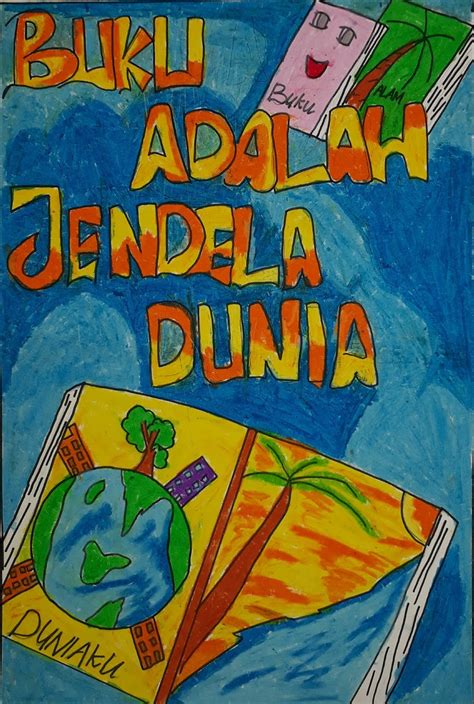 BUKU
ADALAH
JENDELA
DUNIA
BUKU
ALAM
DUNIAKU